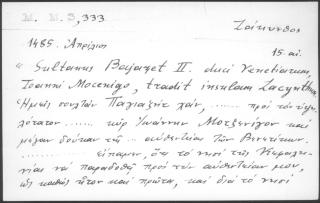 M. M. 3, 333
Ζάκυνθος
1485. Ἀπρίλιος
15 αἰ.
" Sultanus Bajazet II. duci Venetiarum,
Ioanni Mocenigo, tradit insulam Zacynthum
Ἡμεῖς σουλτὰν Παγιαζήτ χάν, ...... πρὸ τὸν
λότατον ....... κὺρ Ἰωάννην Μοτζενῖγον καὶ
μέγαν δούκαν τῆς ... αὐθεντείας τῶν Βενετίκων.
........ εἴπαμεν, ὅτι τὸ νησὶ τῆς
νίας νὰ παραδοθῇ πρὸς τὴν αὐθεντείαν μου,
ὡς καθὼς ἦτον καὶ πρῶτα, καὶ διὰ τὸ νησὶ